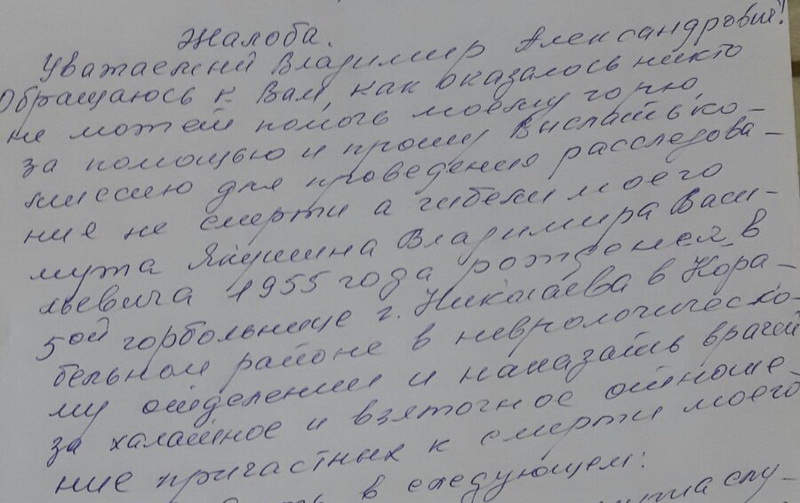 Жалоба.
Уважаемый Владимир Александрович!
Обращаюсь к Вам, как оказалось никто
не может помочь моему горю,
за помощью и прошу Выслать ко-
миссию для проведения расследова-
ния не смерти а гибели моего
мужа Якушина Владимира Васи-
льевича 1955 года рождения в
5ой горбольнице г. Николаева в Кора-
бельном районе в неврологическо-
му отделении и наказать врачей
за халатное и взяточное отноше-
ние причастных к смерти моего
в следующем: